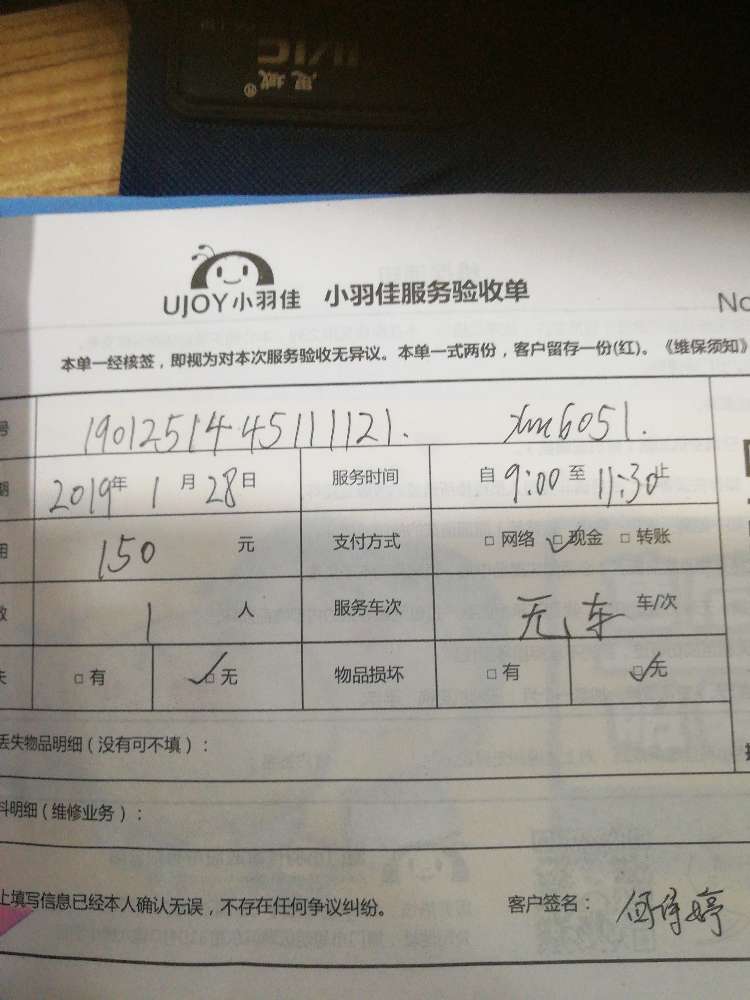 思域®
UJOY小羽佳 小羽佳服务验收单
No
本单一经核签，即视为对本次服务验收无异议。本单一式两份，客户留存一份(红)。《维保须知》
号 1901251445111121. xm6051.
期 2019年 1月 28日 服务时间 自 9:00 至 11:30 止
用 150 元 支付方式 □ 网络 ☑ 现金 □ 转账
数 1 人 服务车次 无车 车/次
失 □ 有 ☑ 无 物品损坏 □ 有 ☑ 无
丢失物品明细（没有可不填）：
料明细（维修业务）：
上填写信息已经本人确认无误，不存在任何争议纠纷。 客户签名：